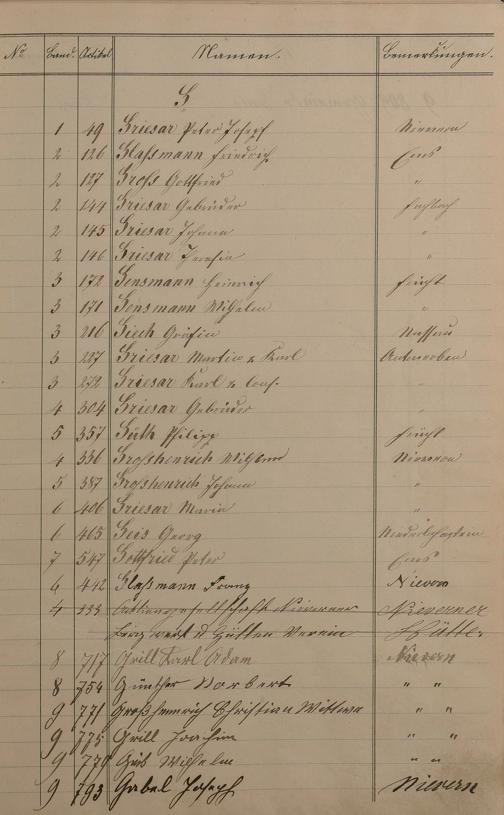 No Band. Artikel Namen. Bemerkungen.
G
1 49 Griesar Peter Joseph Nievern
2 126 Glaßmann Friedrich Ems
2 127 Groß Gottfried "
2 144 Griesar Gebrüder Fachbach
2 145 Griesar Johann "
2 146 Griesar Theresia "
3 172 Gensmann Heinrich Frücht
3 171 Gensmann Wilhelm "
3 216 Giech Gräfin Nassau
3 227 Griesar Martin & Karl
3 272 Griesar Karl & Cons. "
4 304 Griesar Gebrüder "
5 357 Güth Philipp Frücht
4 336 Großhenrich Wilhelm Nievern
5 387 Großhenrich Johann "
6 406 Griesar Maria "
6 465 Geis Georg Niederlahnstein
7 547 Gottfried Peter Ems
6 442 Glaßmann Franz Nievern
4 333 Actiengesellschaft Nieverner Nieverner
Bergwerk u Hütten Verein Hütte
8 717 Grill Karl Adam Nievern
8 754 Günther Norbert " "
9 771 Großhenrich Christian Wittwe " "
9 775 Grill Joachim " "
9 Wilhelm " "
9 793 Gabel Joseph Nievern